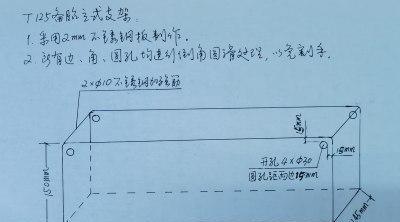 T125备舱立式支架
1. 采用2mm不锈钢板制作。
2. 所有边、角、圆孔均进行倒角圆滑处理，以免割手。
2×φ10不锈钢加强筋
15mm
15mm
开孔4×φ30
圆孔距两边15mm
150mm